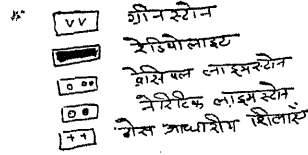 ग्रीन स्टोन
रेडियोलाइट
लाइमस्टोन
नेरिटिक लाइम स्टोन
नीस आधारीय शिलाएँ